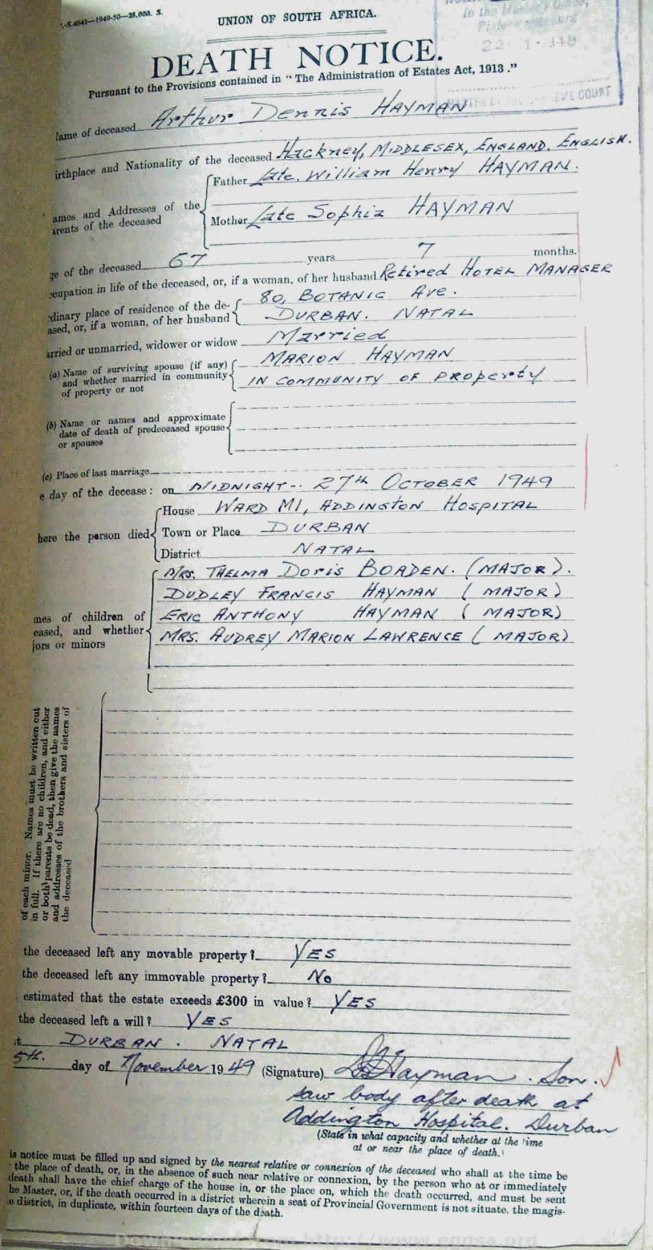 -S.4641—1949-50—25,000. S.
UNION OF SOUTH AFRICA.
DEATH NOTICE.
Pursuant to the Provisions contained in "The Administration of Estates Act, 1913."
COURT
ame of deceased Arthur Dennis HAYMAN
irthplace and Nationality of the deceased Hackney, MIDDLESEX, ENGLAND. ENGLISH.
ames and Addresses of the
arents of the deceased
Father Late. William Henry HAYMAN.
Mother Late Sophia HAYMAN
ge of the deceased 67 years 7 months.
cupation in life of the deceased, or, if a woman, of her husband Retired HOTEL MANAGER
dinary place of residence of the de-
ased, or, if a woman, of her husband
80, BOTANIC AVE.
DURBAN. NATAL
arried or unmarried, widower or widow Married
(a) Name of surviving spouse (if any)
and whether married in community
of property or not
MARION HAYMAN
IN COMMUNITY OF PROPERTY
(b) Name or names and approximate
date of death of predeceased spouse
or spouses
(c) Place of last marriage
e day of the decease: on MIDNIGHT-. 27th OCTOBER 1949
here the person died
House WARD M1, ADDINGTON HOSPITAL
Town or Place DURBAN
District NATAL
mes of children of
eased, and whether
jors or minors
MRS. THELMA DORIS BOADEN. (MAJOR).
DUDLEY FRANCIS HAYMAN (MAJOR)
ERIC ANTHONY HAYMAN (MAJOR)
MRS. AUDREY MARION LAWRENCE (MAJOR)
of each minor. Names must be written out
in full. If there are no children, and either
or both parents be dead, then give the names
and addresses of the brothers and sisters of
the deceased
the deceased left any movable property? YES
the deceased left any immovable property? No
estimated that the estate exceeds £300 in value? YES
the deceased left a will? YES
t DURBAN. NATAL
5th. day of November 1949 (Signature) Hayman. Son.
saw body after death at
Addington Hospital. Durban
(State in what capacity and whether at the time
at or near the place of death.)
is notice must be filled up and signed by the nearest relative or connexion of the deceased who shall at the time be
the place of death, or, in the absence of such near relative or connexion, by the person who at or immediately
death shall have the chief charge of the house in, or the place on, which the death occurred, and must be sent
he Master, or, if the death occurred in a district wherein a seat of Provincial Government is not situate, the magis-
e district, in duplicate, within fourteen days of the death.